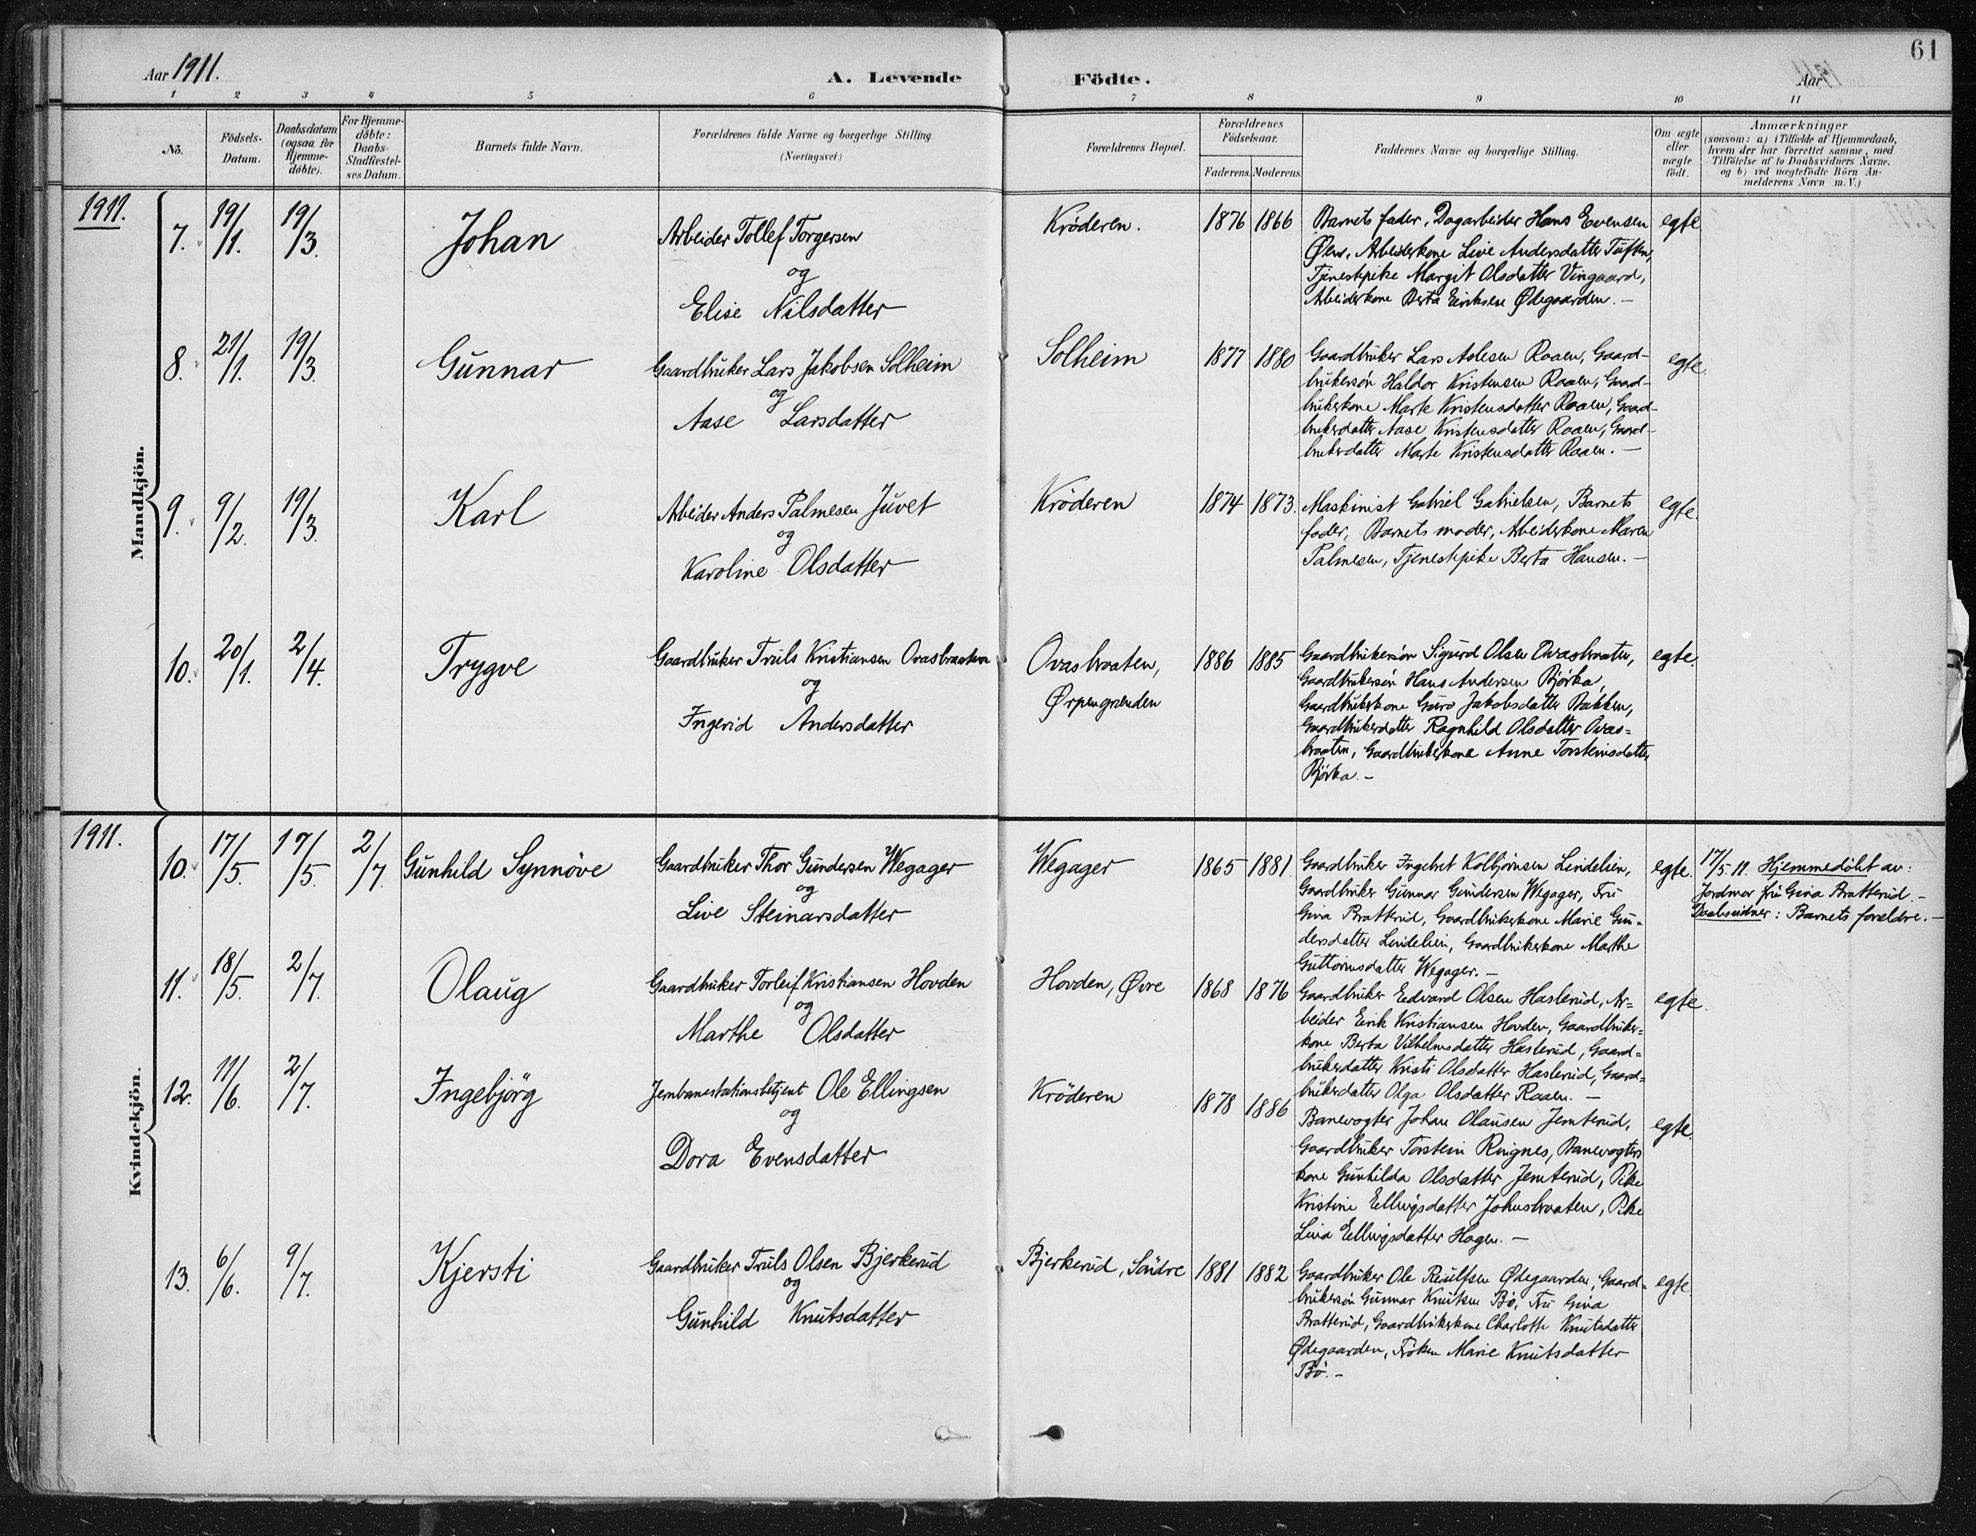 61
Aar 1911.
A. Levende Födte.
Aar 1911
1 2 3 4 5 6 7 8 9 10 11
No.
Födsels-
Datum.
Daabsdatum
(ogsaa for
Hjemme-
døbte).
For Hjemme-
døbte:
Daabs-
Stadfæstel-
ses Datum.
Barnets fulde Navn.
Forældrenes fulde Navne og borgerlige Stilling.
(Næringsvei)
Forældrenes Bopæl.
Forældrenes
Födselsaar.
Faderens. Moderens.
Faddernes Navne og borgerlige Stilling.
Om ægte
eller
uægte
födt.
Anmærkninger
(saasom: a) i Tilfælde af Hjemmedaab,
hvem der har forrettet samme, med
Tilföielse af to Daabsvidners Navne.
og b) ved uægtefödte Börn An-
melderens Navn m. V.)
Mandkjön.
1911.
7. 19/1. 19/3. Johan
Arbeider Tollef Torgersen
og
Elise Nilsdatter
Kröderen. 1876 1866
Barnets fader, Dagarbeider Hans Evensen
Øens, Arbeiderkone Live Andersdatter Tuften,
Tjenestpike Margit Olsdatter Vingaard,
Arbeiderkone Berta Eriksen Ødegaarden. —
egte
8. 21/1. 19/3. Gunnar
Gaardbruker Lars Jakobsen Solheim
og
Aase Larsdatter
Solheim 1877 1880
Gaardbruker Lars Aslesen Raaen, Gaard-
brukersön Haldor Kristensen Raaen, Gaard-
brukerkone Marte Kristensdatter Raaen, Gaard-
brukerdatter Aase Kristensdatter Raaen, Gaard-
brukerdatter Marte Kristensdatter Raaen. —
egte.
9. 9/2. 19/3. Karl
Arbeider Anders Palmesen Juvet
og
Karoline Olsdatter
Kröderen 1874 1873.
Maskinist Gabriel Gabrielsen, Barnets
fader, Barnets moder, Arbeiderkone Maren
Palmesen, Tjenestpike Berta Hansen. —
egte.
10. 20/1. 2/4. Trygve
Gaardbruker Truls Kristiansen Ovasbraaten
og
Ingerid Andersdatter
Ovasbraaten,
Ørpengrænden
1886 1885
Gaardbrukersön Sigurd Olsen Ovasbraaten,
Gaardbrukersön Hans Andersen Björka,
Gaardbrukerkone Guro Jakobsdatter Bakken,
Gaardbrukerdatter Ragnhild Olsdatter Ovas-
braaten, Gaardbrukerkone Anne Torsteinsdatter
Björka. —
egte.
Kvindekjön.
1911.
10. 17/5. 17/5. 2/7. Gunhild Synnöve
Gaardbruker Thor Gundersen Wegager
og
Live Steinarsdatter
Wegager 1865 1881.
Gaardbruker Ingebret Kolbjönsen Lindelien,
Gaardbruker Gunnar Gundersen Wegager, Fru
Gina Bratterud, Gaardbrukerkone Marie Gun-
dersdatter Lindelien, Gaardbrukerkone Marthe
Guttormsdatter Wegager. —
egte.
17/5.11. Hjemmedöbt av:
Jordmor fru Gina Bratterud. —
Daabsvidner: Barnets forældre. —
11. 18/5. 2/7. Olaug
Gaardbruker Torleif Kristiansen Hovden
og
Marthe Olsdatter
Hovden, Øvre 1868 1876
Gaardbruker Edvard Olsen Haslerud, Ar-
beider Eirik Kristiansen Hovden, Gaardbruker-
kone Berta Vilhelmsdatter Haslerud, Gaard-
brukerdatter Kristi Olsdatter Haslerud, Gaard-
brukerdatter Olga Olsdatter Raaen. —
egte.
12. 11/6. 2/7. Ingebjörg
Jernbanestationsbetjent Ole Ellingsen
og
Dora Evensdatter
Kröderen 1878 1886
Banevogter Johan Olausen Jemterud,
Gaardbruker Torstein Ringnes, Banevogter-
kone Gunhilda Olsdatter Jemterud, Pike
Kristine Ellingsdatter Johnsbraaten, Pike
Lina Ellingsdatter Hagen. —
egte.
13. 6/6. 9/7. Kjersti
Gaardbruker Truls Olsen Bjerkerud
og
Gunhild Knutsdatter
Bjerkerud, Söndre 1881 1882
Gaardbruker Ole Reiulfsen Ødegaarden, Gaard-
brukersön Gunnar Knutsen Bö, Fru Gina
Bratterud, Gaardbrukerkone Charlotte Knutsdatter
Ødegaarden, Fröken Marie Knutsdatter
Bö. —
egte.